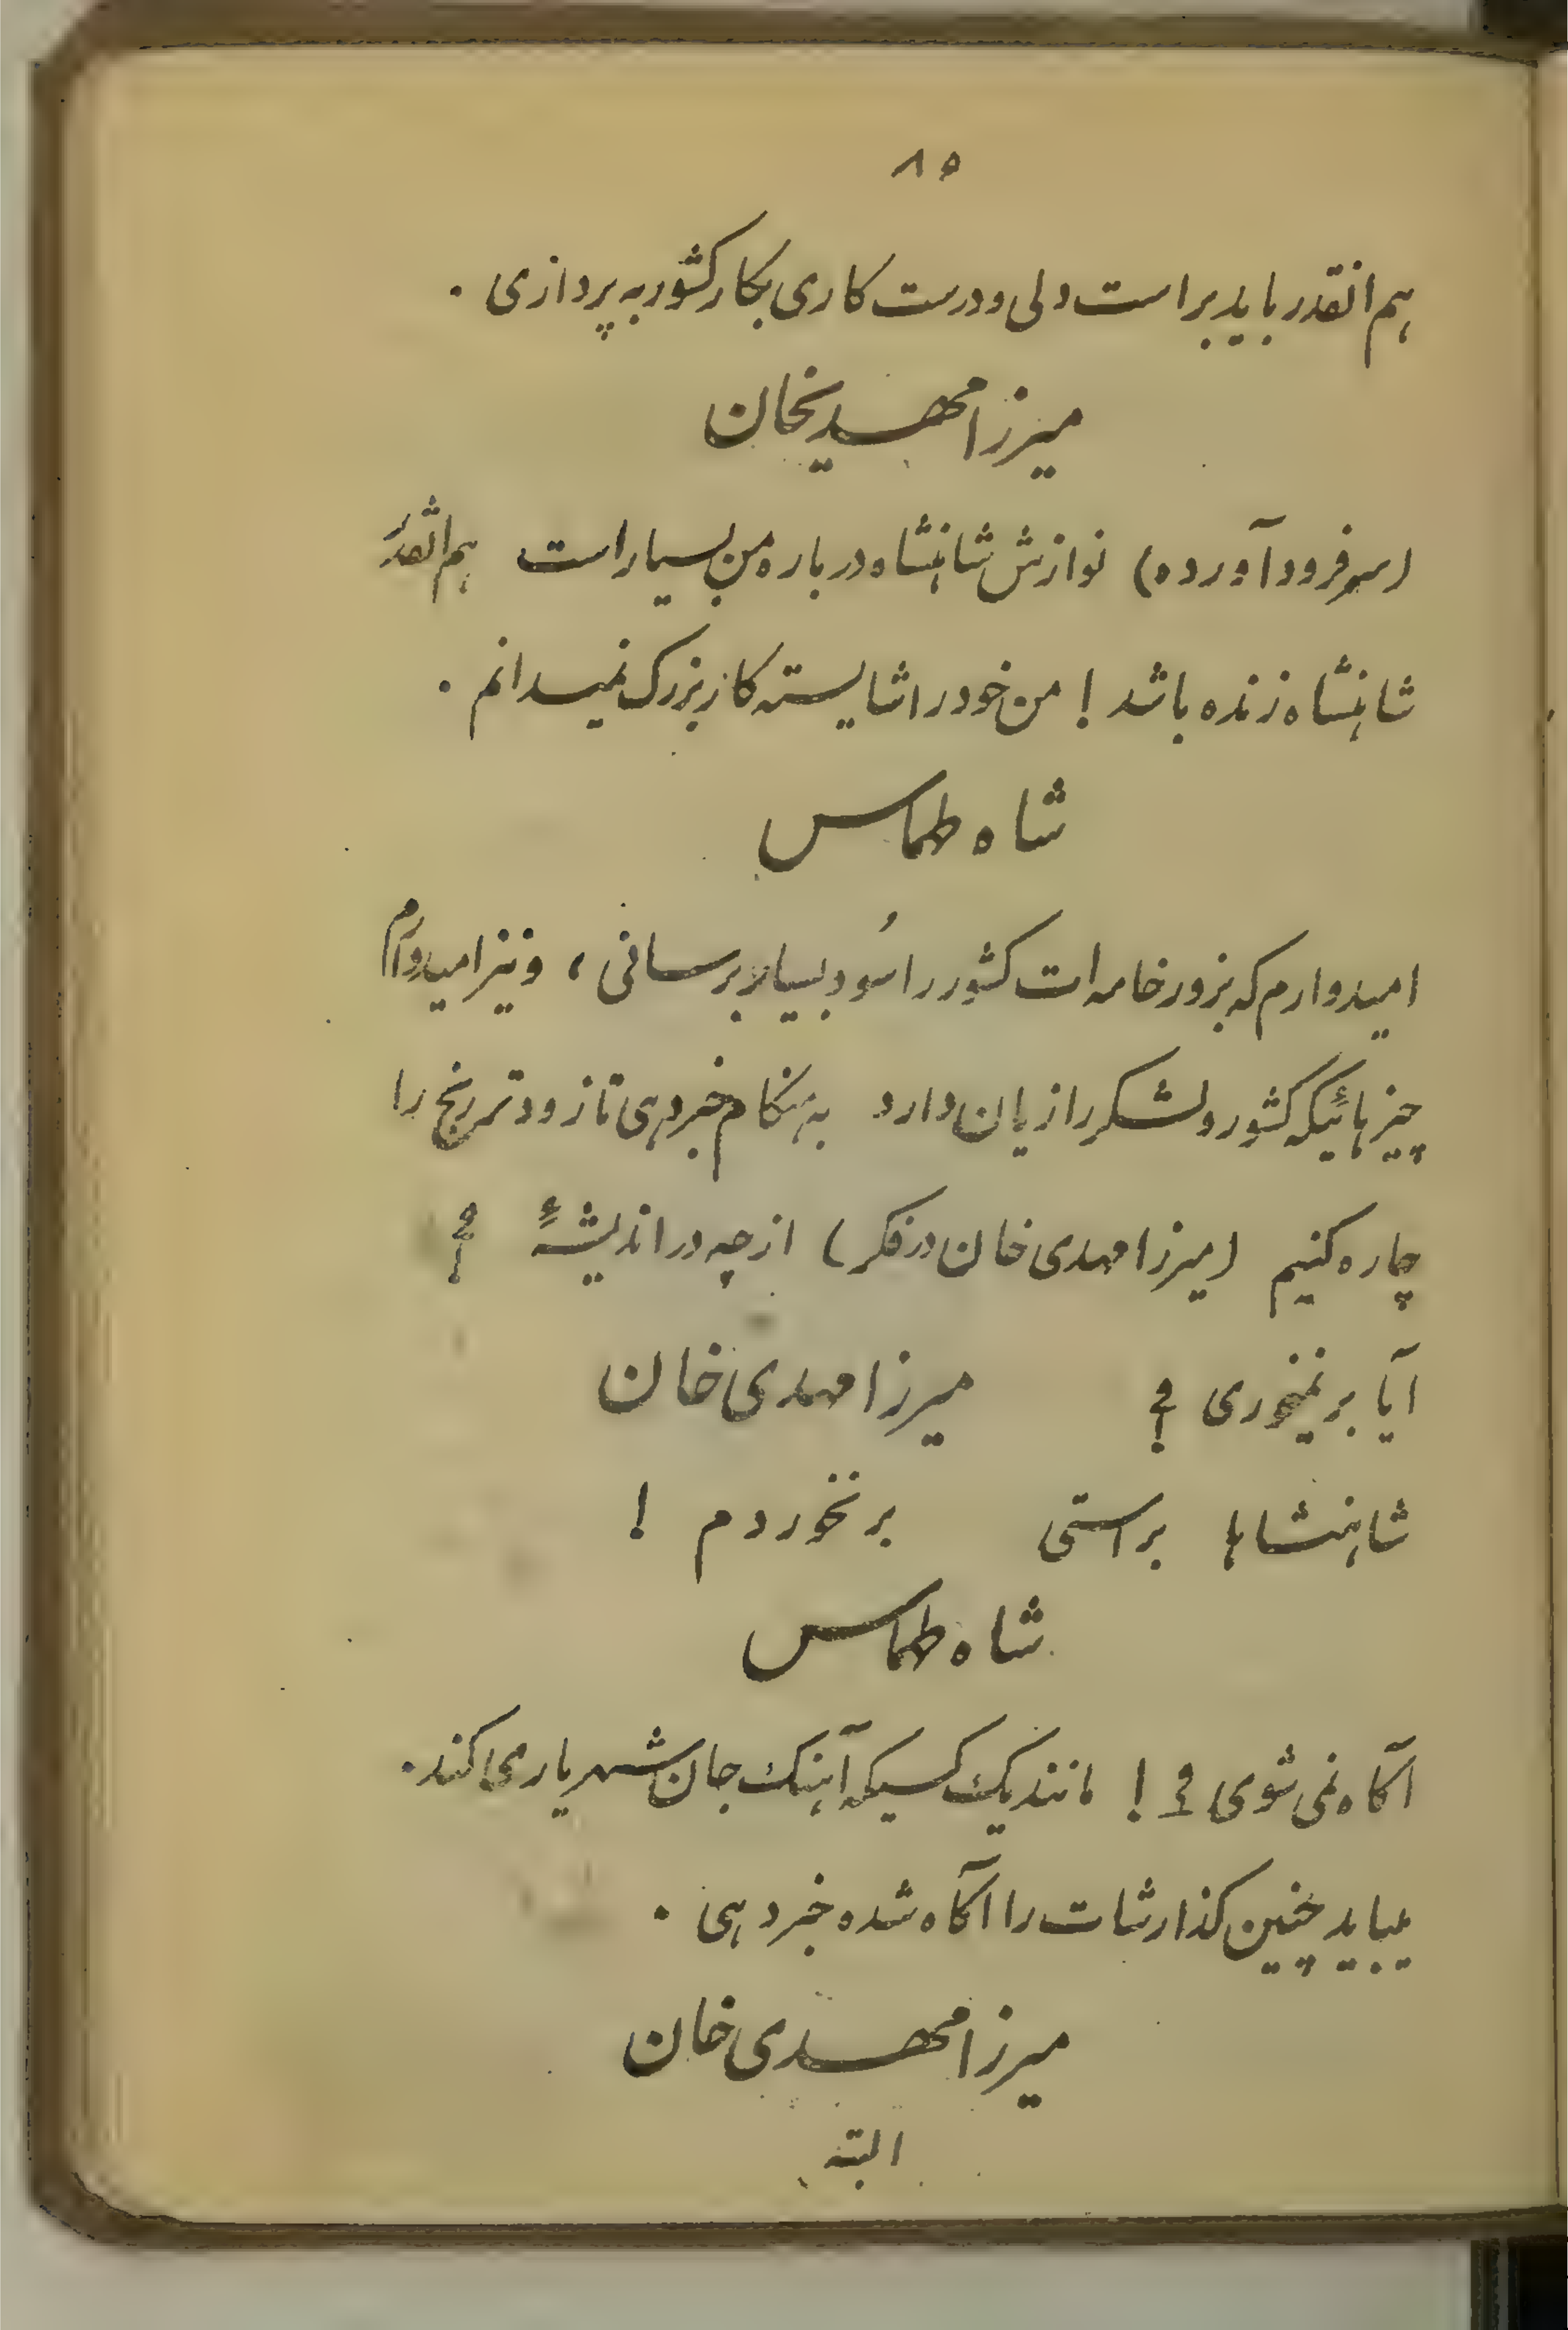 ۸۵
هم انقدر باید براست دلی و درست کاری بکار کشور به پردازی .
میرزا مهدیخان
(سر فرود آورده) نوازش شاهنشاه در باره من بسیار است هم انقدر
شاهنشاه زنده باشد ! من خود را شایسته کار بزرک نمیدانم .
شاه طهماس
امیدوارم که بزور خامه ات کشور را سُود بسیار برسانی ، و نیز امیدوارم
چیزهائیکه کشور و لشکر را زیان دارد بهنکام خبر دهی تا زودتر رنج را
چاره کنیم (میرزا مهدی خان در فکر) از چه در اندیشهٔ ؟
آیا بر نمیخوری ؟ میرزا مهدی خان
شاهنشاها براستی بر نخوردم !
شاه طهماس
آکاه نمی شوی ؟ ! مانند یک کسیکه آهنک جان شهریاری کند.
میباید چنین کذارشات را آکاه شده خبر دهی .
میرزا مهدی خان
البته